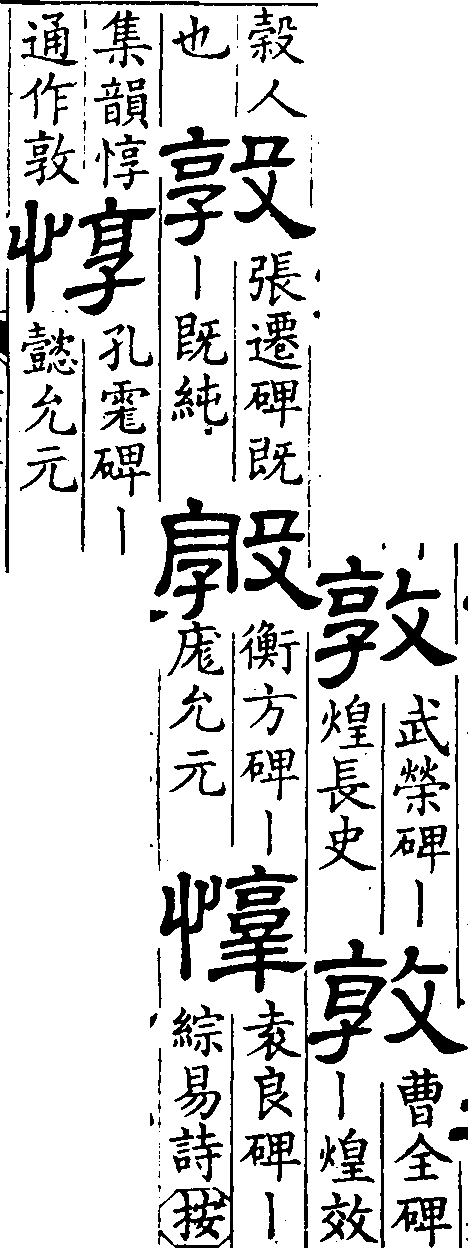 敦
武榮碑丨
煌長史
敦
曹全碑
丨煌效
穀人
也
敦
張遷碑既
丨既純
敦
衡方碑丨
庬允元
惇
袁良碑丨
綜易詩按
集韻惇
通作敦
惇
孔碑丨
懿允元